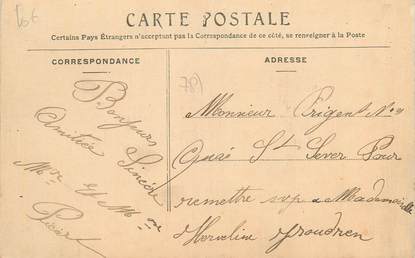 CARTE POSTALE
Certains Pays Étrangers n'acceptant pas la Correspondance de ce côté, se renseigner à la Poste
CORRESPONDANCE
ADRESSE
Bonjours
Sincère
Amitiés
Mr et Mme
Monsieur Prigent
St Sever Pour
remettre svp a Mademoiselle
Herveline